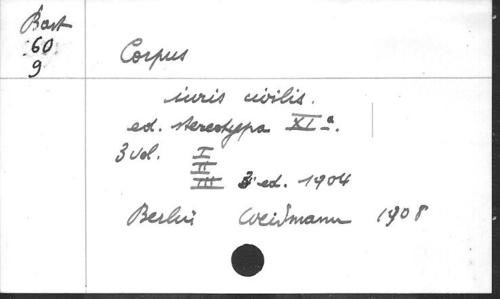 Bart
60
9
Corpus
iuris civilis.
ed. stereotypa XI a.
3 vol. I
II
III 3 ed. 1904
Berlin Weidmann 1908